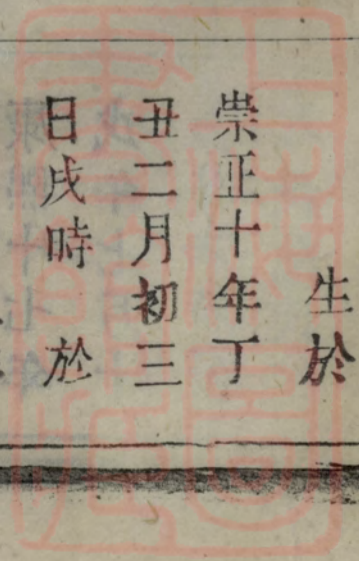 生於
崇正十年丁
丑二月初三
日戌時於